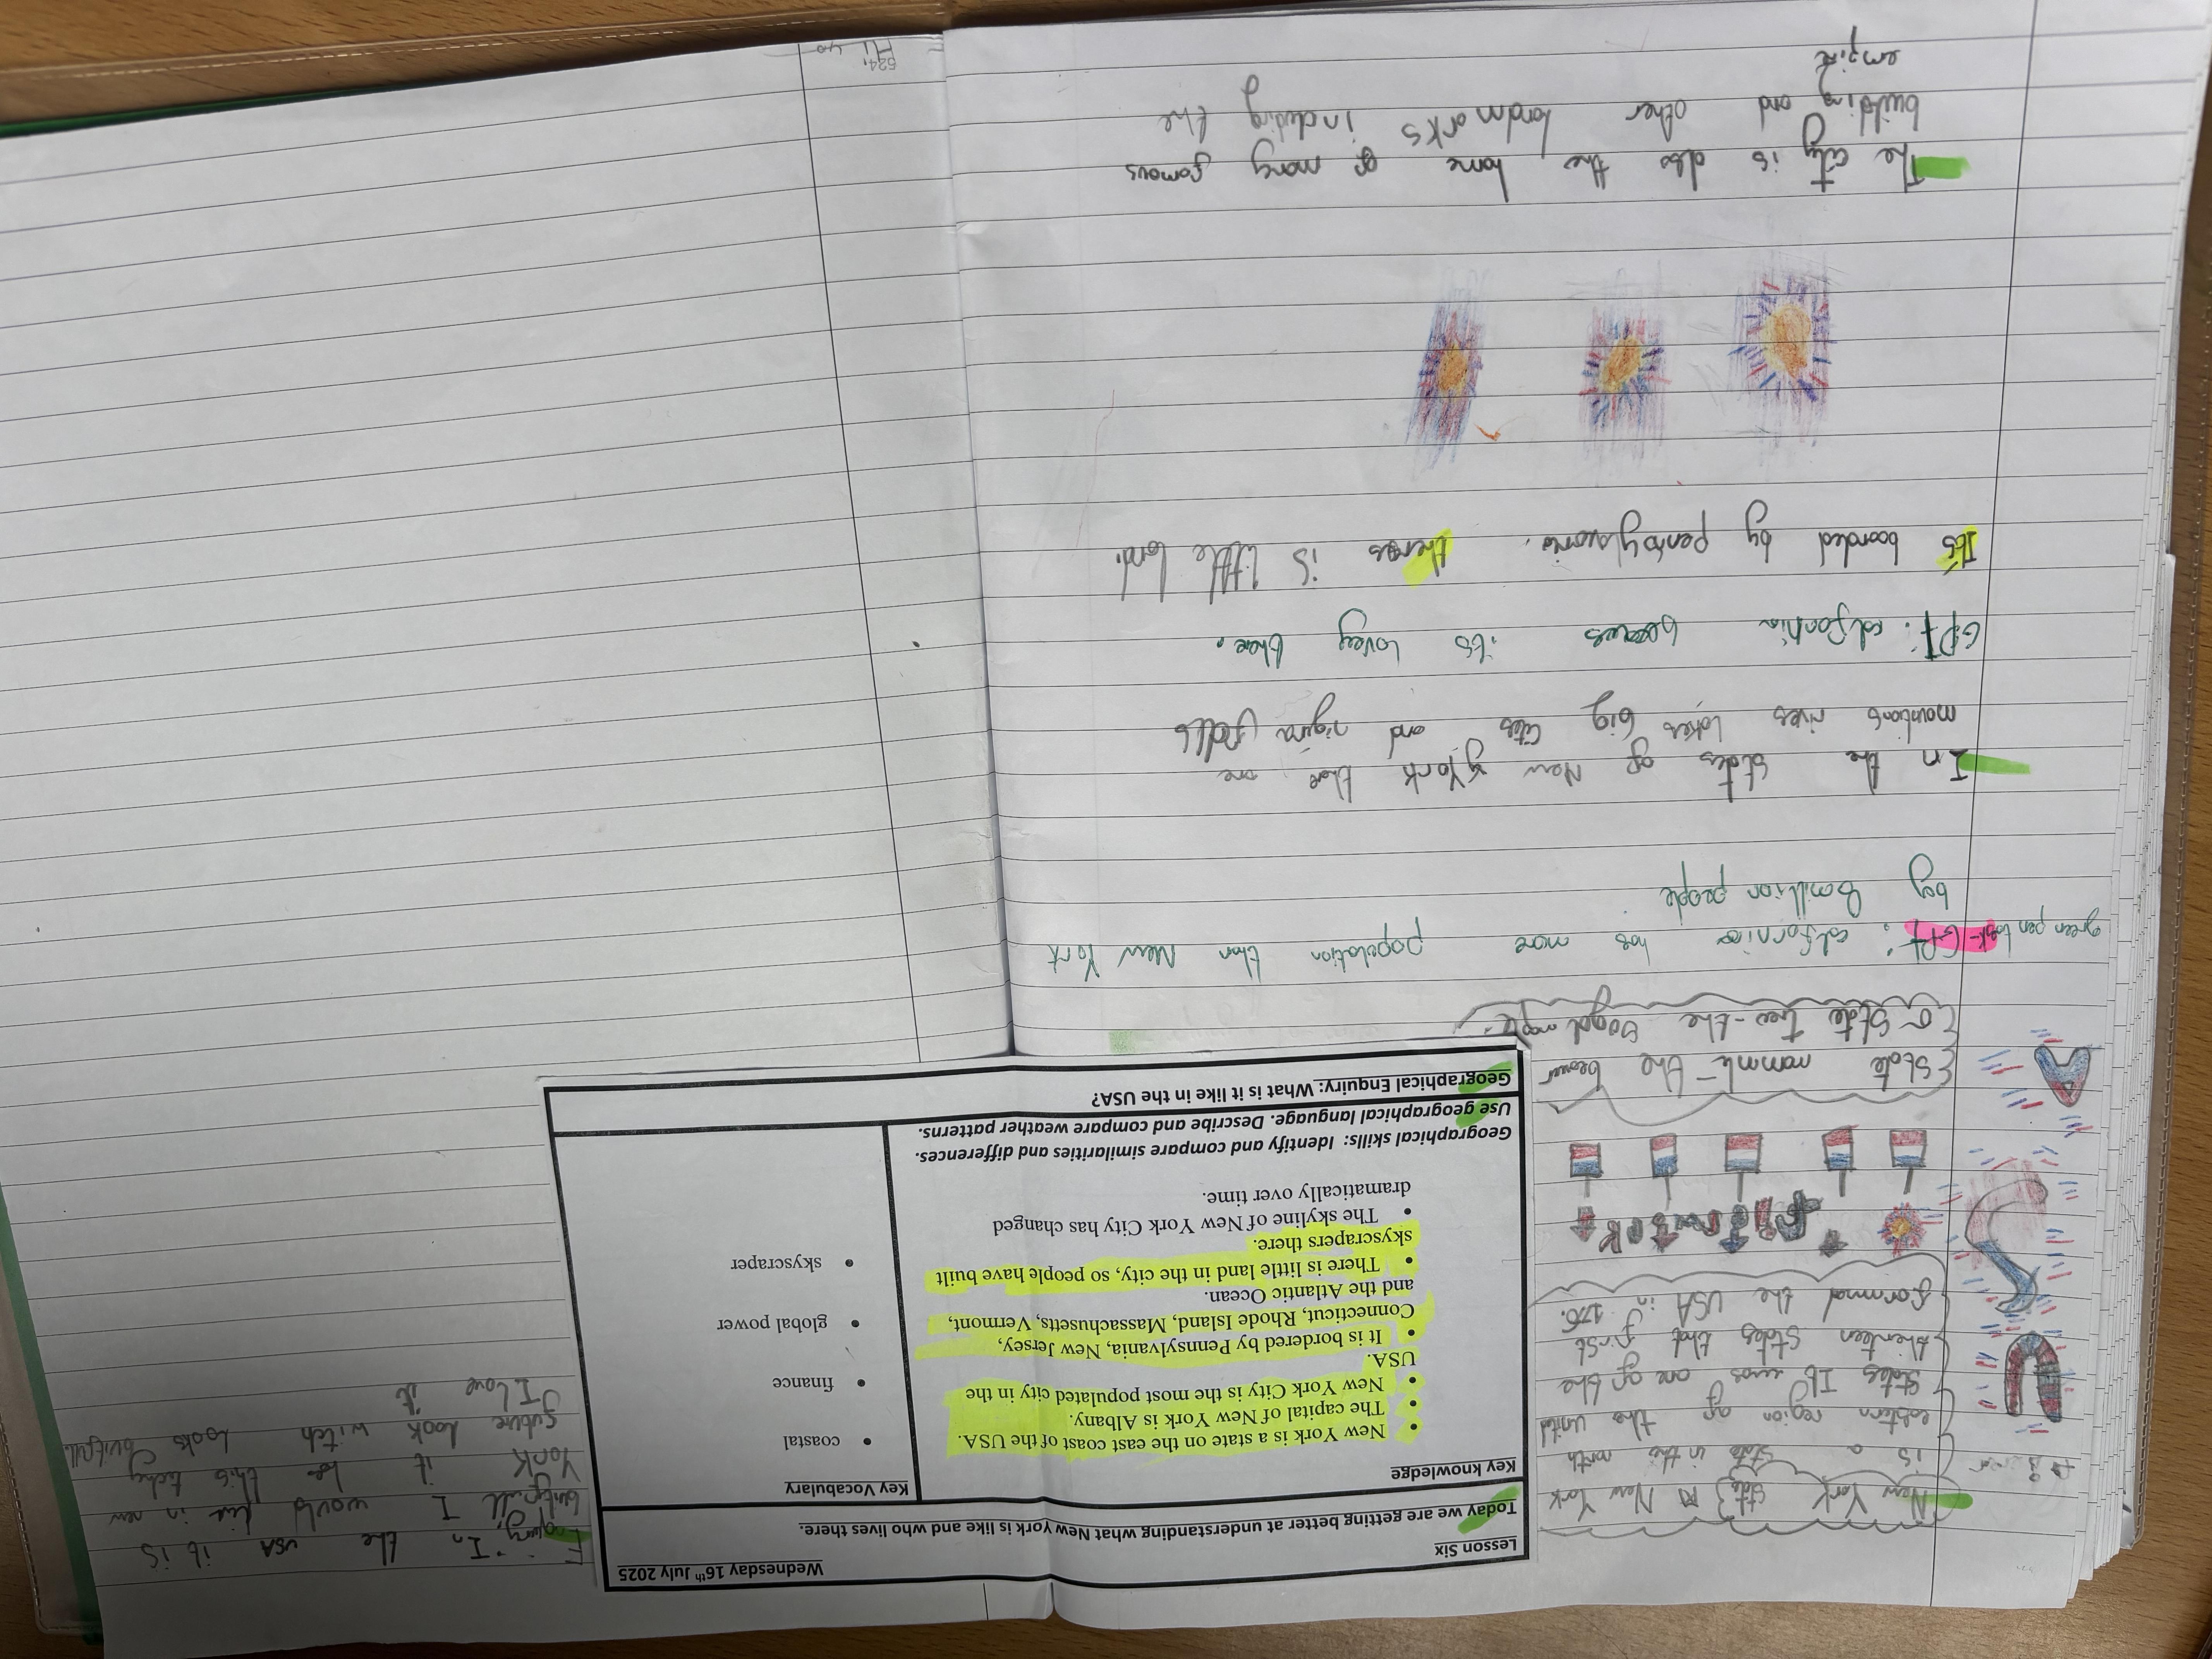 Lesson Six
Wednesday 16th July 2025
Today we are getting better at understanding what New york is like and who lives there.
Key knowledge
• New York is a state on the east coast of the USA.
• The capital of New York is Albany.
• New York City is the most populated city in the
USA.
• It is bordered by Pennsylvania, New Jersey,
Connecticut, Rhode Island, Massachusetts, Vermont,
and the Atlantic Ocean.
• There is little land in the city, so people have built
skyscrapers there.
• The skyline of New York City has changed
dramatically over time.
Key Vocabulary
• coastal
• finance
• global power
• skyscraper
Geographical skills: Identify and compare similarities and differences.
Use geographical language. Describe and compare weather patterns.
Geographical Enquiry: What is it like in the USA?
New York state New York
is a state in the north
eastern region of the united
states It was one of the
thirteen states that first
formmd the USA in
USA
State mamml - the bever
State Tree - the sugal maple.
green pen task - GPT: calfornia has more population than New York
by 8 million people
In the states of New York there are
mountions rives lakes big cites and nigira falls
GPT: calfornia becaues its lovey there.
Its boarded by pensylvania. theres is little land.
The city is also the home of many famous
building and other landmarks including the
empire
Enquiry: In the USA it is
butyfull I would live in new
York it be this techy
future look witch looks butyfull
I love it